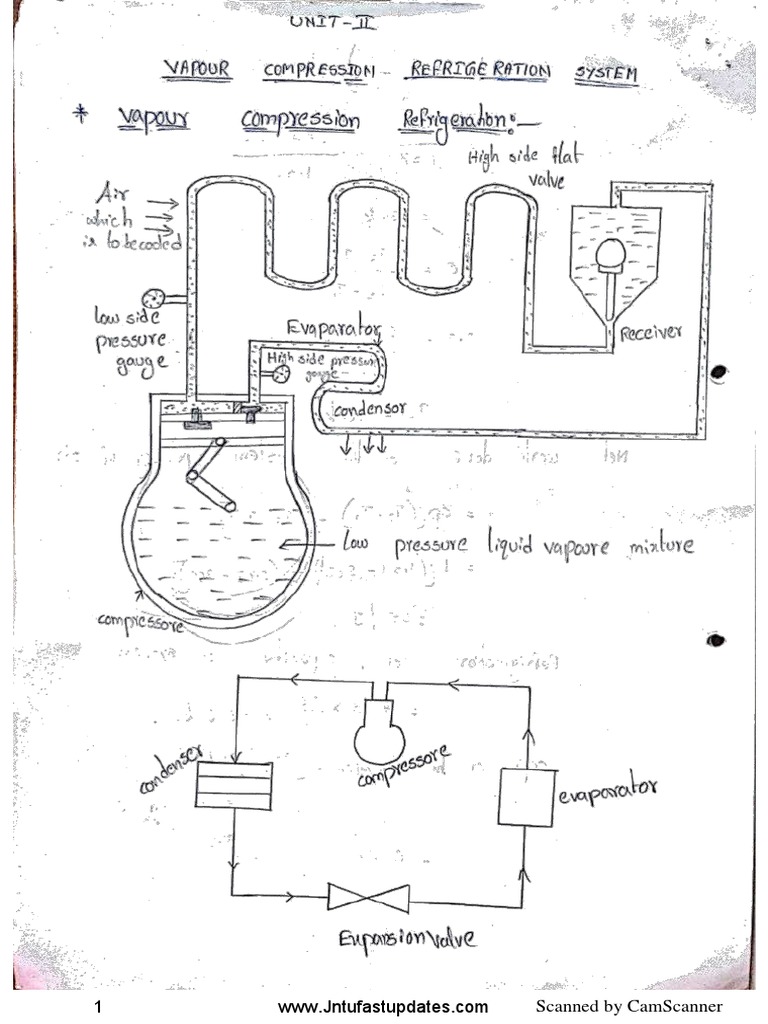 UNIT-II
VAPOUR COMPRESSION REFRIGERATION SYSTEM
* Vapour compression Refrigeration:-
High side flat
valve
Air
which
is to be cooled
Low side
pressure
gauge
Evaparator
High side pressure
gauge
Receiver
condensor
Low pressure liquid vapoure mixture
compressore
condenser
compressore
evaparator
Expansion valve
1
www.Jntufastupdates.com
Scanned by CamScanner